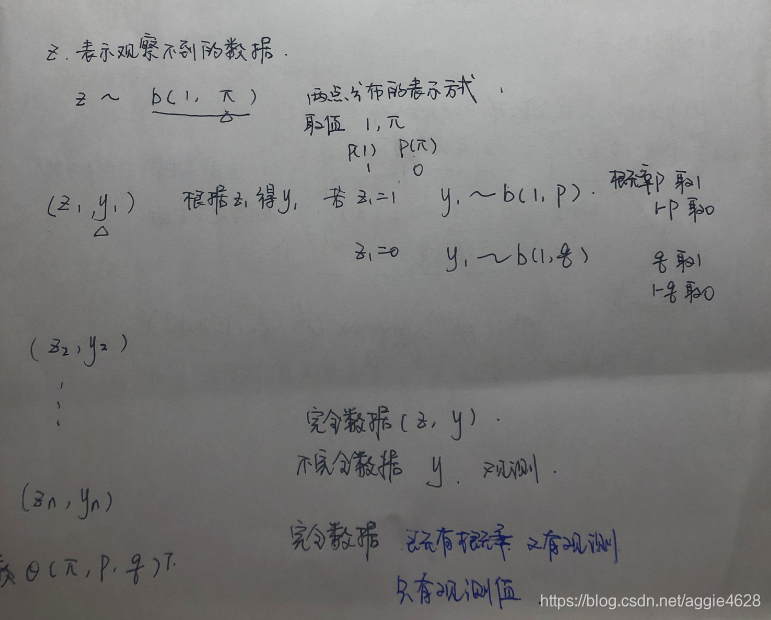 z. 表示观察不到的数据.
z ~ b(1, π) 两点分布的表示方式.
取值 1, π
P(1) P(π)
1 0
(z₁, y₁) 根据z₁得y₁ 若 z₁=1 y₁ ~ b(1, p). 概率p 取1
1-p 取0
z₁=0 y₁ ~ b(1, q) q 取1
1-q 取0
(z₂, y₂)
⋮
完全数据 (z, y).
不完全数据 y. 观测.
(zn, yn)
完全数据 既有概率 又有观测
θ(π, p, q)T.
只有观测值
https://blog.csdn.net/aggie4628